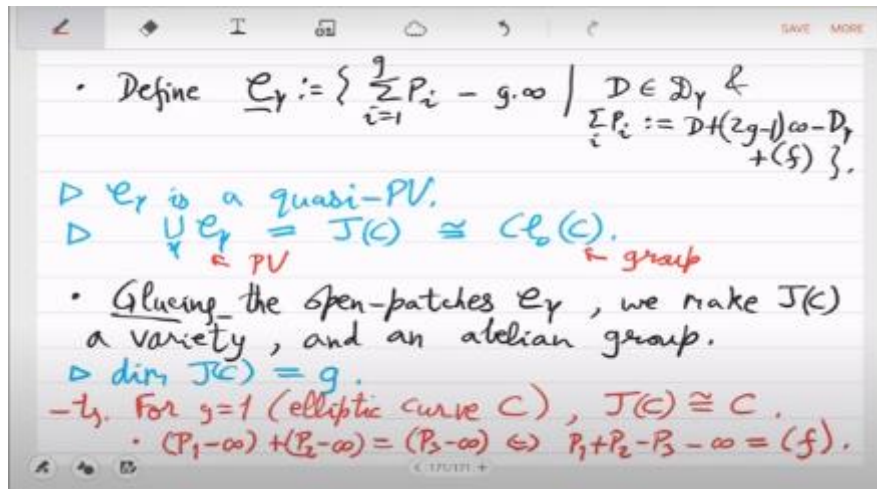 T SAVE MORE
• Define 𝒞_γ := { Σ_{i=1}^{g} P_i − g.∞ | D ∈ 𝒟_γ &
Σ_i P_i := D+(2g-1)∞ − D_γ
+(f) }.
▷ 𝒞_γ is a quasi-PV.
▷ ∪_γ 𝒞_γ = J(C) ≅ Cl_0(C).
↖ PV ↖ group
• Glueing the open-patches 𝒞_γ, we make J(C)
a variety, and an abelian group.
▷ dim J(C) = g.
For g=1 (elliptic curve C), J(C) ≅ C.
• (P_1-∞) + (P_2-∞) = (P_3-∞) ⇔ P_1+P_2-P_3-∞ = (f).
< 171/171 +